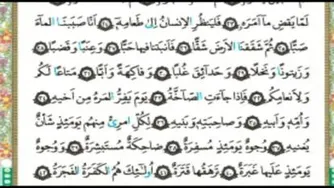 لَمَّا يَقْضِ مَآ أَمَرَهُۥ ۝٢٣ فَلْيَنظُرِ ٱلْإِنسَٰنُ إِلَىٰ طَعَامِهِۦٓ ۝٢٤ أَنَّا صَبَبْنَا ٱلْمَآءَ
صَبًّا ۝٢٥ ثُمَّ شَقَقْنَا ٱلْأَرْضَ شَقًّا ۝٢٦ فَأَنۢبَتْنَا فِيهَا حَبًّا ۝٢٧ وَعِنَبًا وَقَضْبًا ۝٢٨
وَزَيْتُونًا وَنَخْلًا ۝٢٩ وَحَدَآئِقَ غُلْبًا ۝٣٠ وَفَٰكِهَةً وَأَبًّا ۝٣١ مَّتَٰعًا لَّكُمْ
وَلِأَنْعَٰمِكُمْ ۝٣٢ فَإِذَا جَآءَتِ ٱلصَّآخَّةُ ۝٣٣ يَوْمَ يَفِرُّ ٱلْمَرْءُ مِنْ أَخِيهِ ۝٣٤
وَأُمِّهِۦ وَأَبِيهِ ۝٣٥ وَصَٰحِبَتِهِۦ وَبَنِيهِ ۝٣٦ لِكُلِّ ٱمْرِئٍ مِّنْهُمْ يَوْمَئِذٍ شَأْنٌ
يُغْنِيهِ ۝٣٧ وُجُوهٌ يَوْمَئِذٍ مُّسْفِرَةٌ ۝٣٨ ضَاحِكَةٌ مُّسْتَبْشِرَةٌ ۝٣٩ وَوُجُوهٌ
يَوْمَئِذٍ عَلَيْهَا غَبَرَةٌ ۝٤٠ تَرْهَقُهَا قَتَرَةٌ ۝٤١ أُو۟لَٰٓئِكَ هُمُ ٱلْكَفَرَةُ ٱلْفَجَرَةُ ۝٤٢